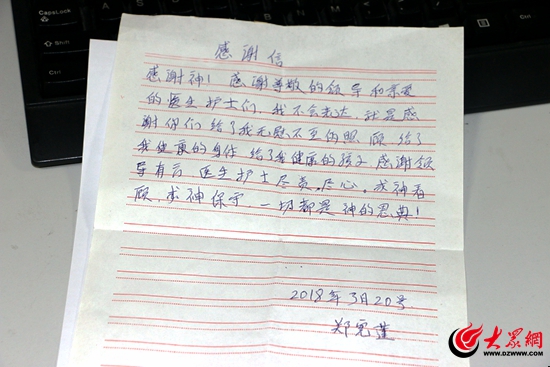 CapsLock
Shift
Ctrl
感谢信
感谢神！感谢尊敬的领导和亲爱
的医生护士们，我不会表达，就是感
谢你们给了我无慰不至的照顾，给了
我健康的身体，给了我健康的孩子，感谢领
导有方，医生护士尽责，尽心，求神看
顾，求神保守，一切都是神的恩典！
2018年3月20号
大众网
WWW.DZWWW.COM